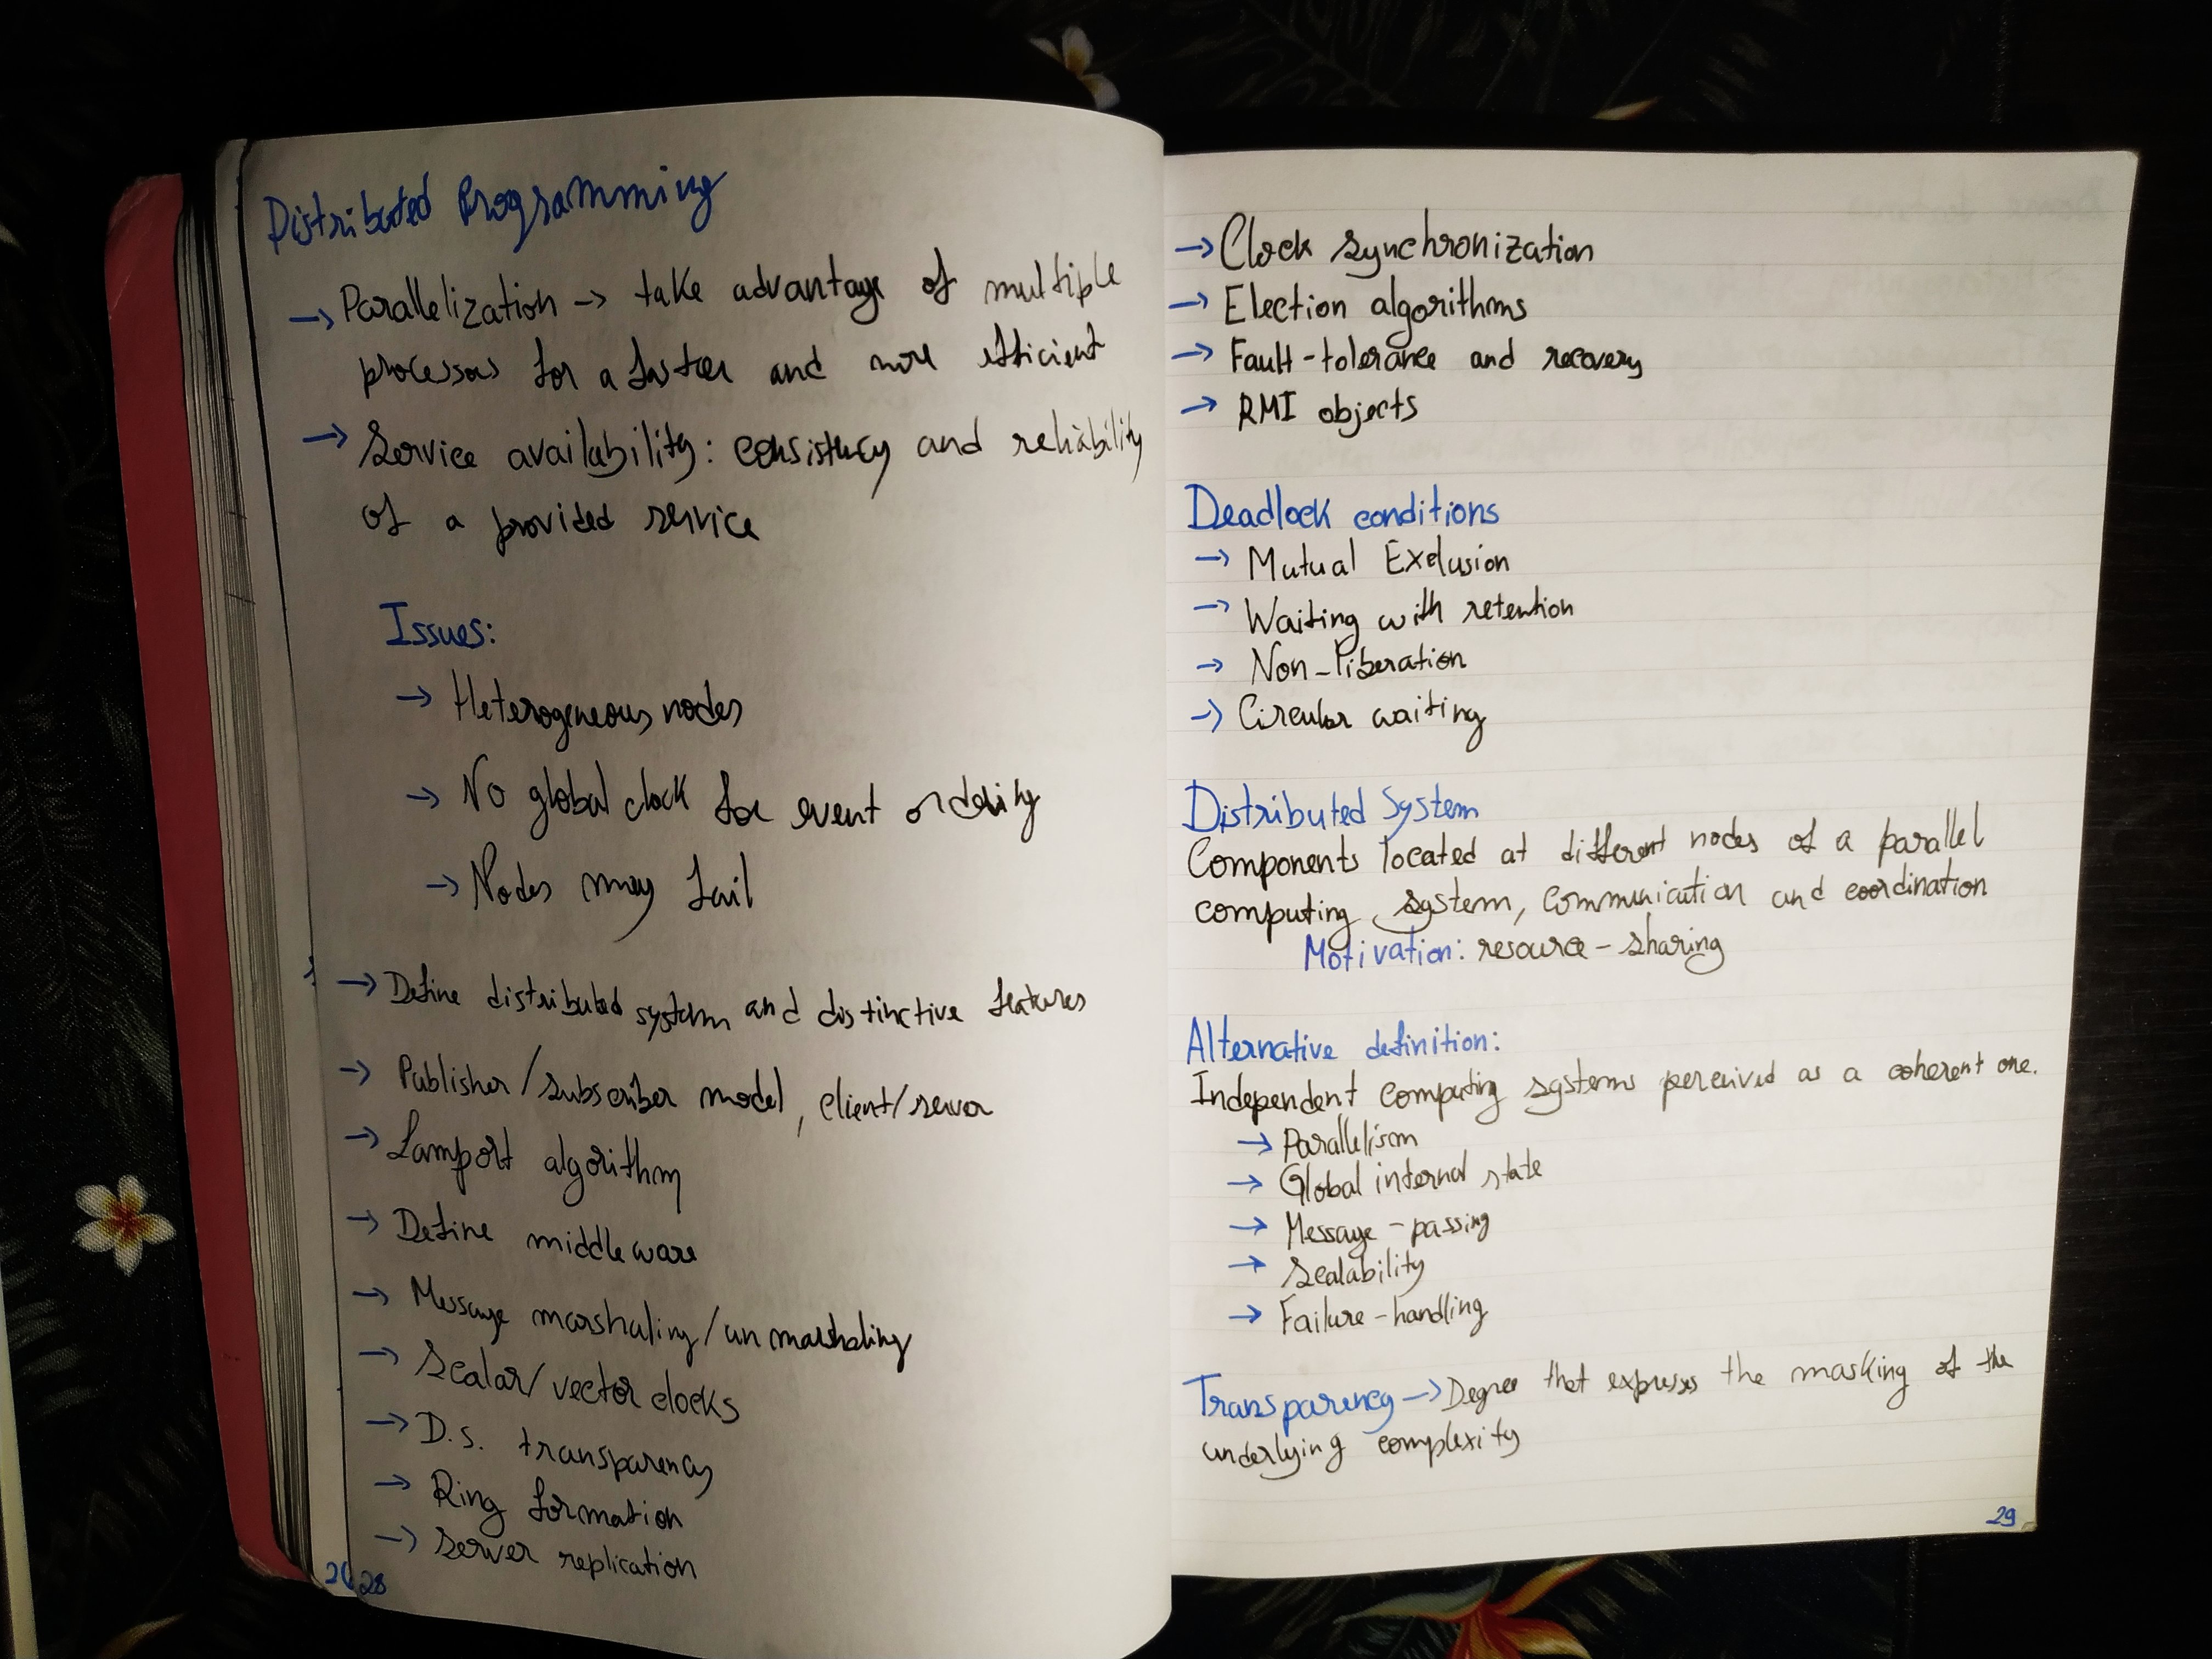 Distributed Programming
→ Parallelization → take advantage of multiple
processors for a faster and more efficient
→ Service availability: consistency and reliability
of a provided service
Issues:
→ Heterogeneous nodes
→ No global clock for event ordering
→ Nodes may fail
→ Define distributed system and distinctive features
→ Publisher/subscriber model, client/server
→ Lamport algorithm
→ Define middleware
→ Message marshaling/unmarshaling
→ Scalar/vector clocks
→ D.S. transparency
→ Ring formation
→ Server replication
28
→ Clock synchronization
→ Election algorithms
→ Fault-tolerance and recovery
→ RMI objects
Deadlock conditions
→ Mutual Exclusion
→ Waiting with retention
→ Non-liberation
→ Circular waiting
Distributed System
Components located at different nodes of a parallel
computing system, communication and coordination
Motivation: resource-sharing
Alternative definition:
Independent computing systems perceived as a coherent one.
→ Parallelism
→ Global internal state
→ Message-passing
→ Scalability
→ Failure-handling
Transparency → Degree that expresses the masking of the
underlying complexity
29